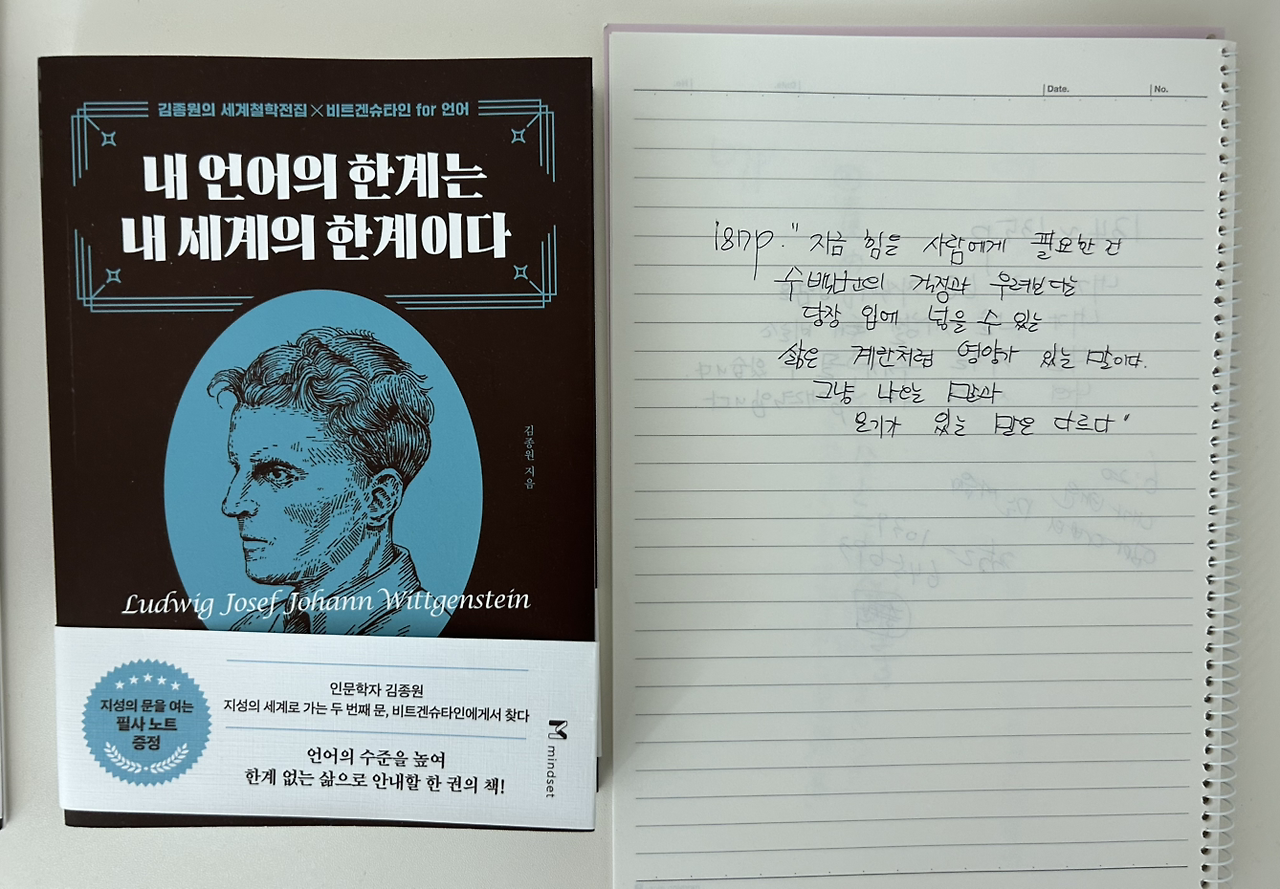 김종원의 세계철학전집×비트겐슈타인 for 언어
내 언어의 한계는
내 세계의 한계이다
김종원 지음
Ludwig Josef Johann Wittgenstein
지성의 문을 여는
필사 노트
증정
인문학자 김종원
지성의 세계로 가는 두 번째 문, 비트겐슈타인에게서 찾다
언어의 수준을 높여
한계 없는 삶으로 안내할 한 권의 책!
mindset
Date.
No.
187p. "지금 힘든 사람에게 필요한 건
수백번의 걱정과 우려보다는
당장 입에 넣을 수 있는
삶은 계란처럼 영양가 있는 말이다.
그냥 나오는 말과
온기가 있는 말은 다르다"